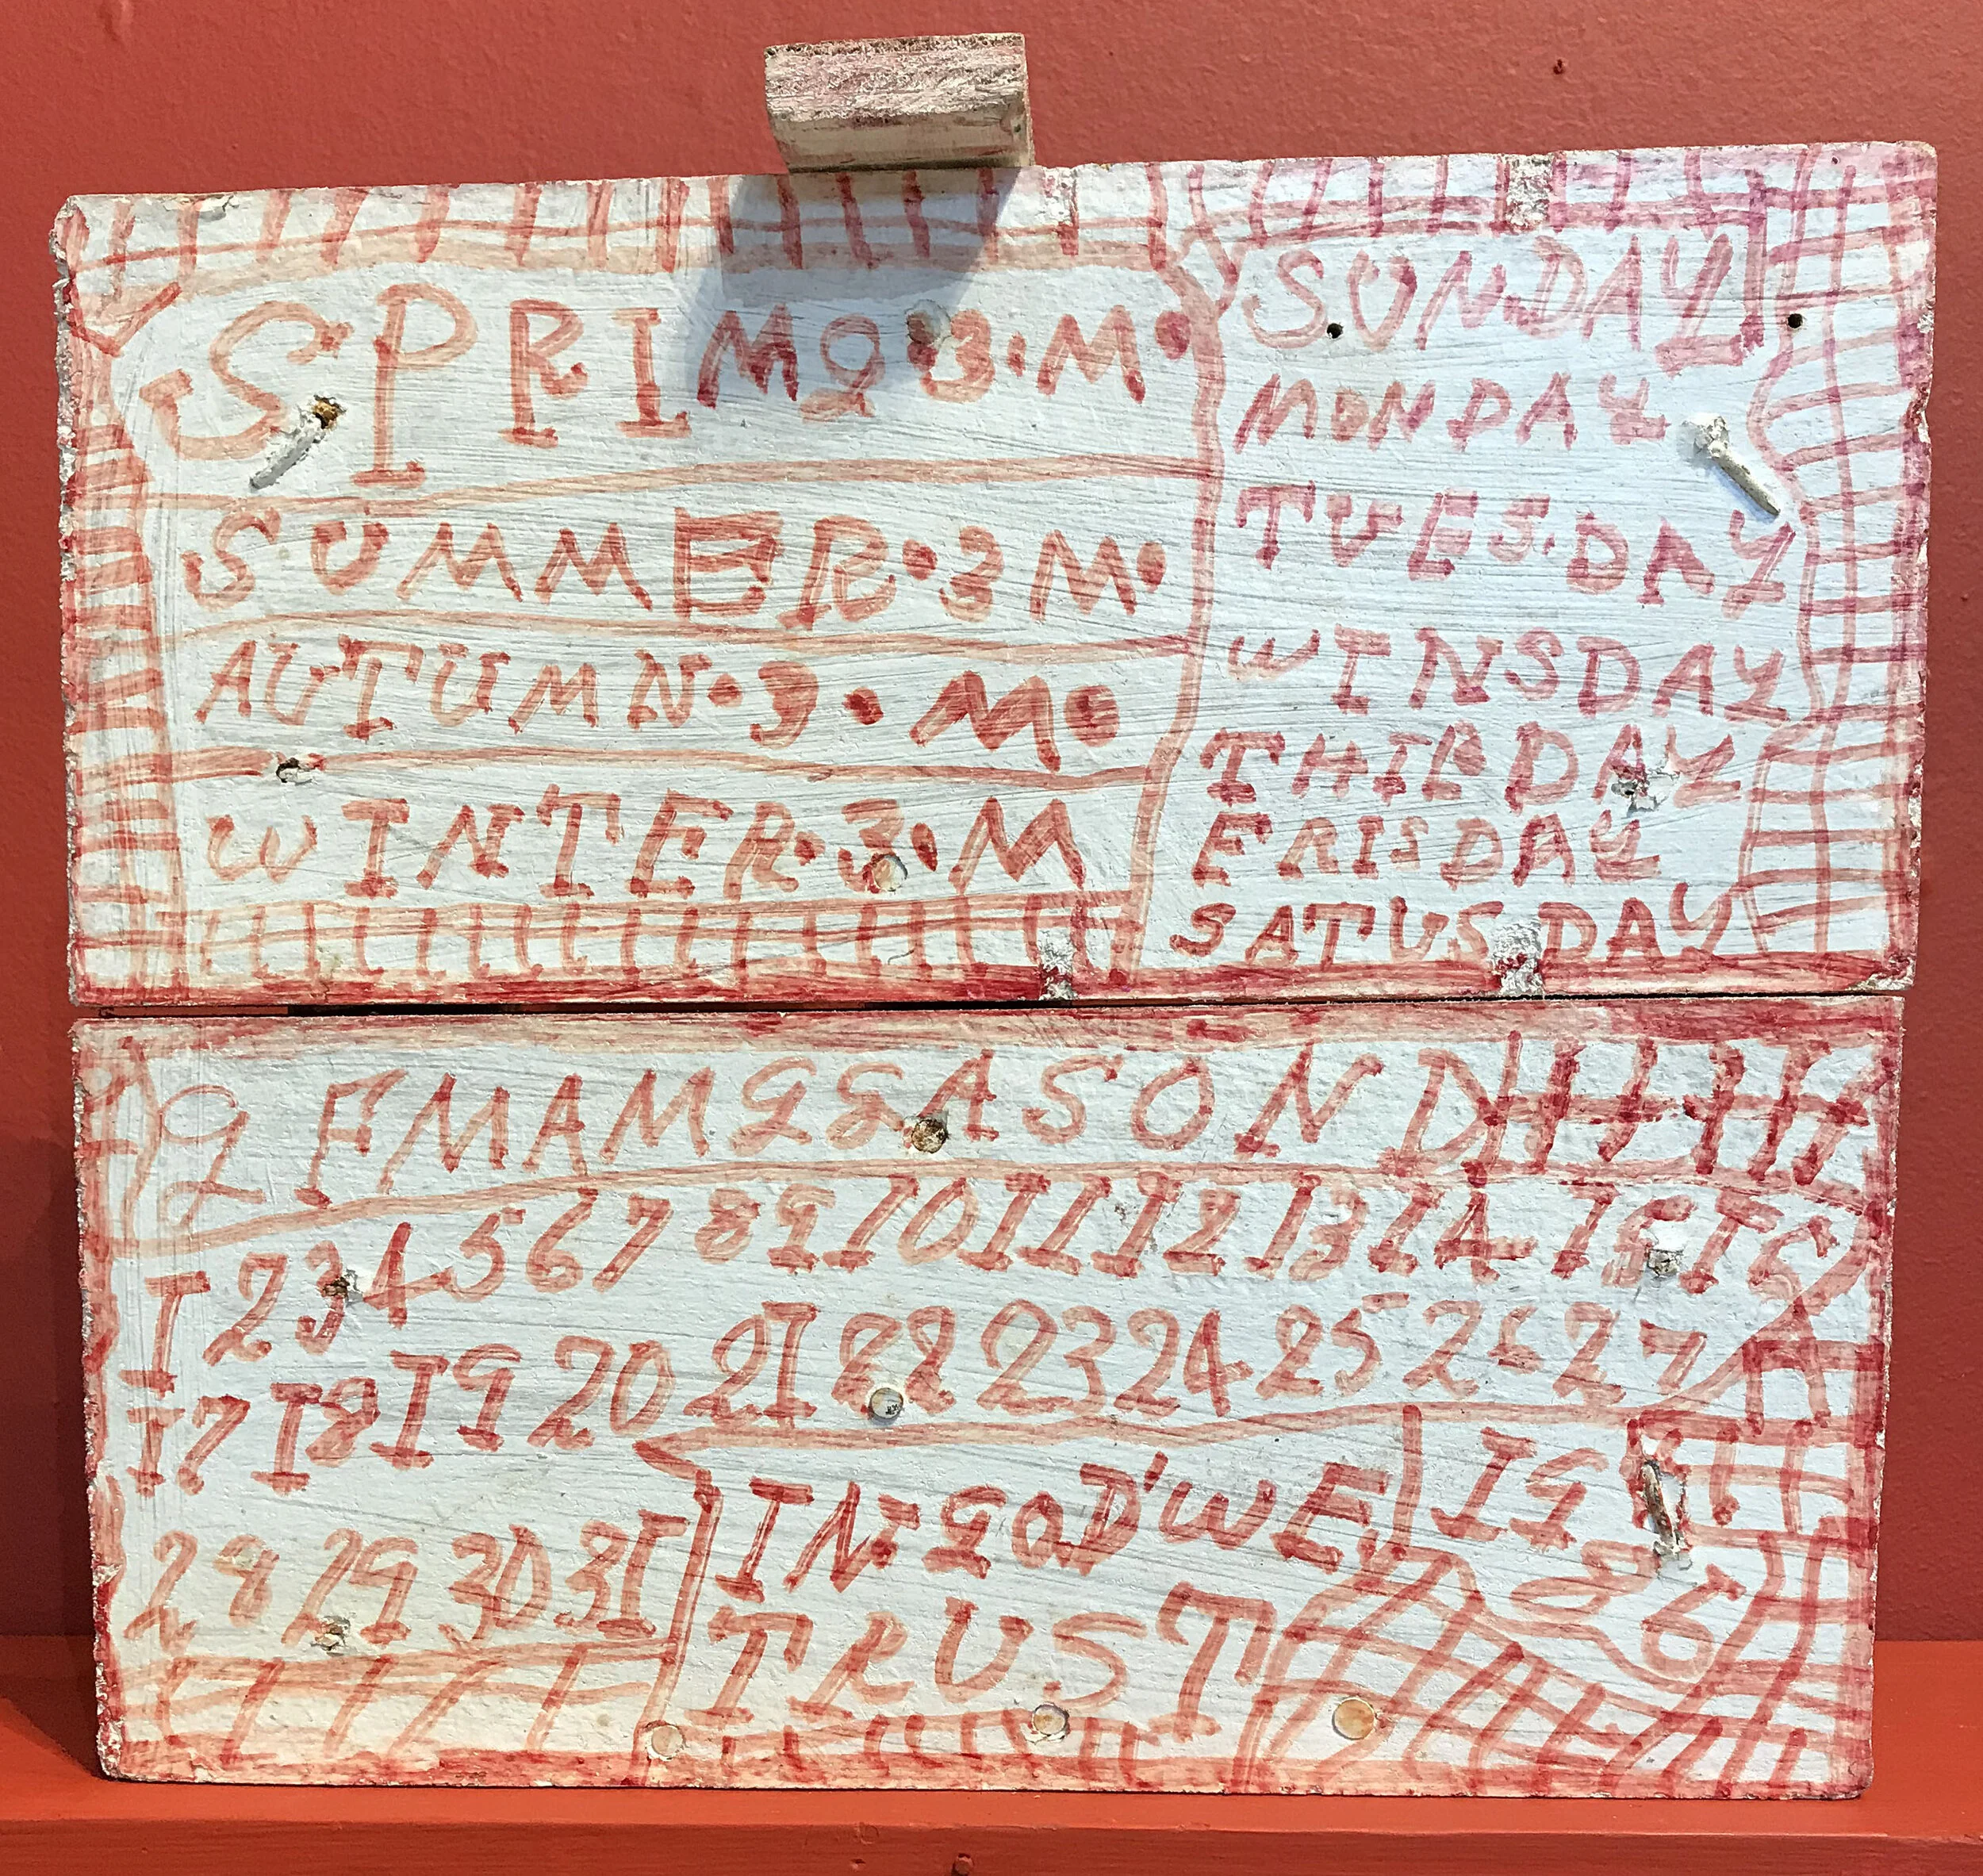 SPRIMG•3•M•
SUMMER•3M•
AUTUMN•3•M•
WINTER•3•M
SUNDAY
MONDAY
TUES.DAY
WINSDAY
THIRDAY
FRISDAY
SATUSDAY
J F M A M J J A S O N D
1 2 3 4 5 6 7 8 9 10 11 12 13 14 15 16
17 18 19 20 21 22 23 24 25 26 27
28 29 30 31
IN•GOD'WE
TRUST
19
86